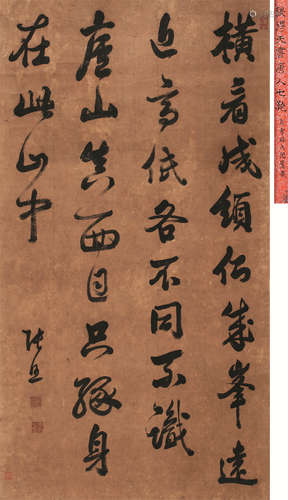 橫看成領側成峯遠
近高低各不同不識
廬山真面目只緣身
在此山中
張照
張得天書唐人七絕